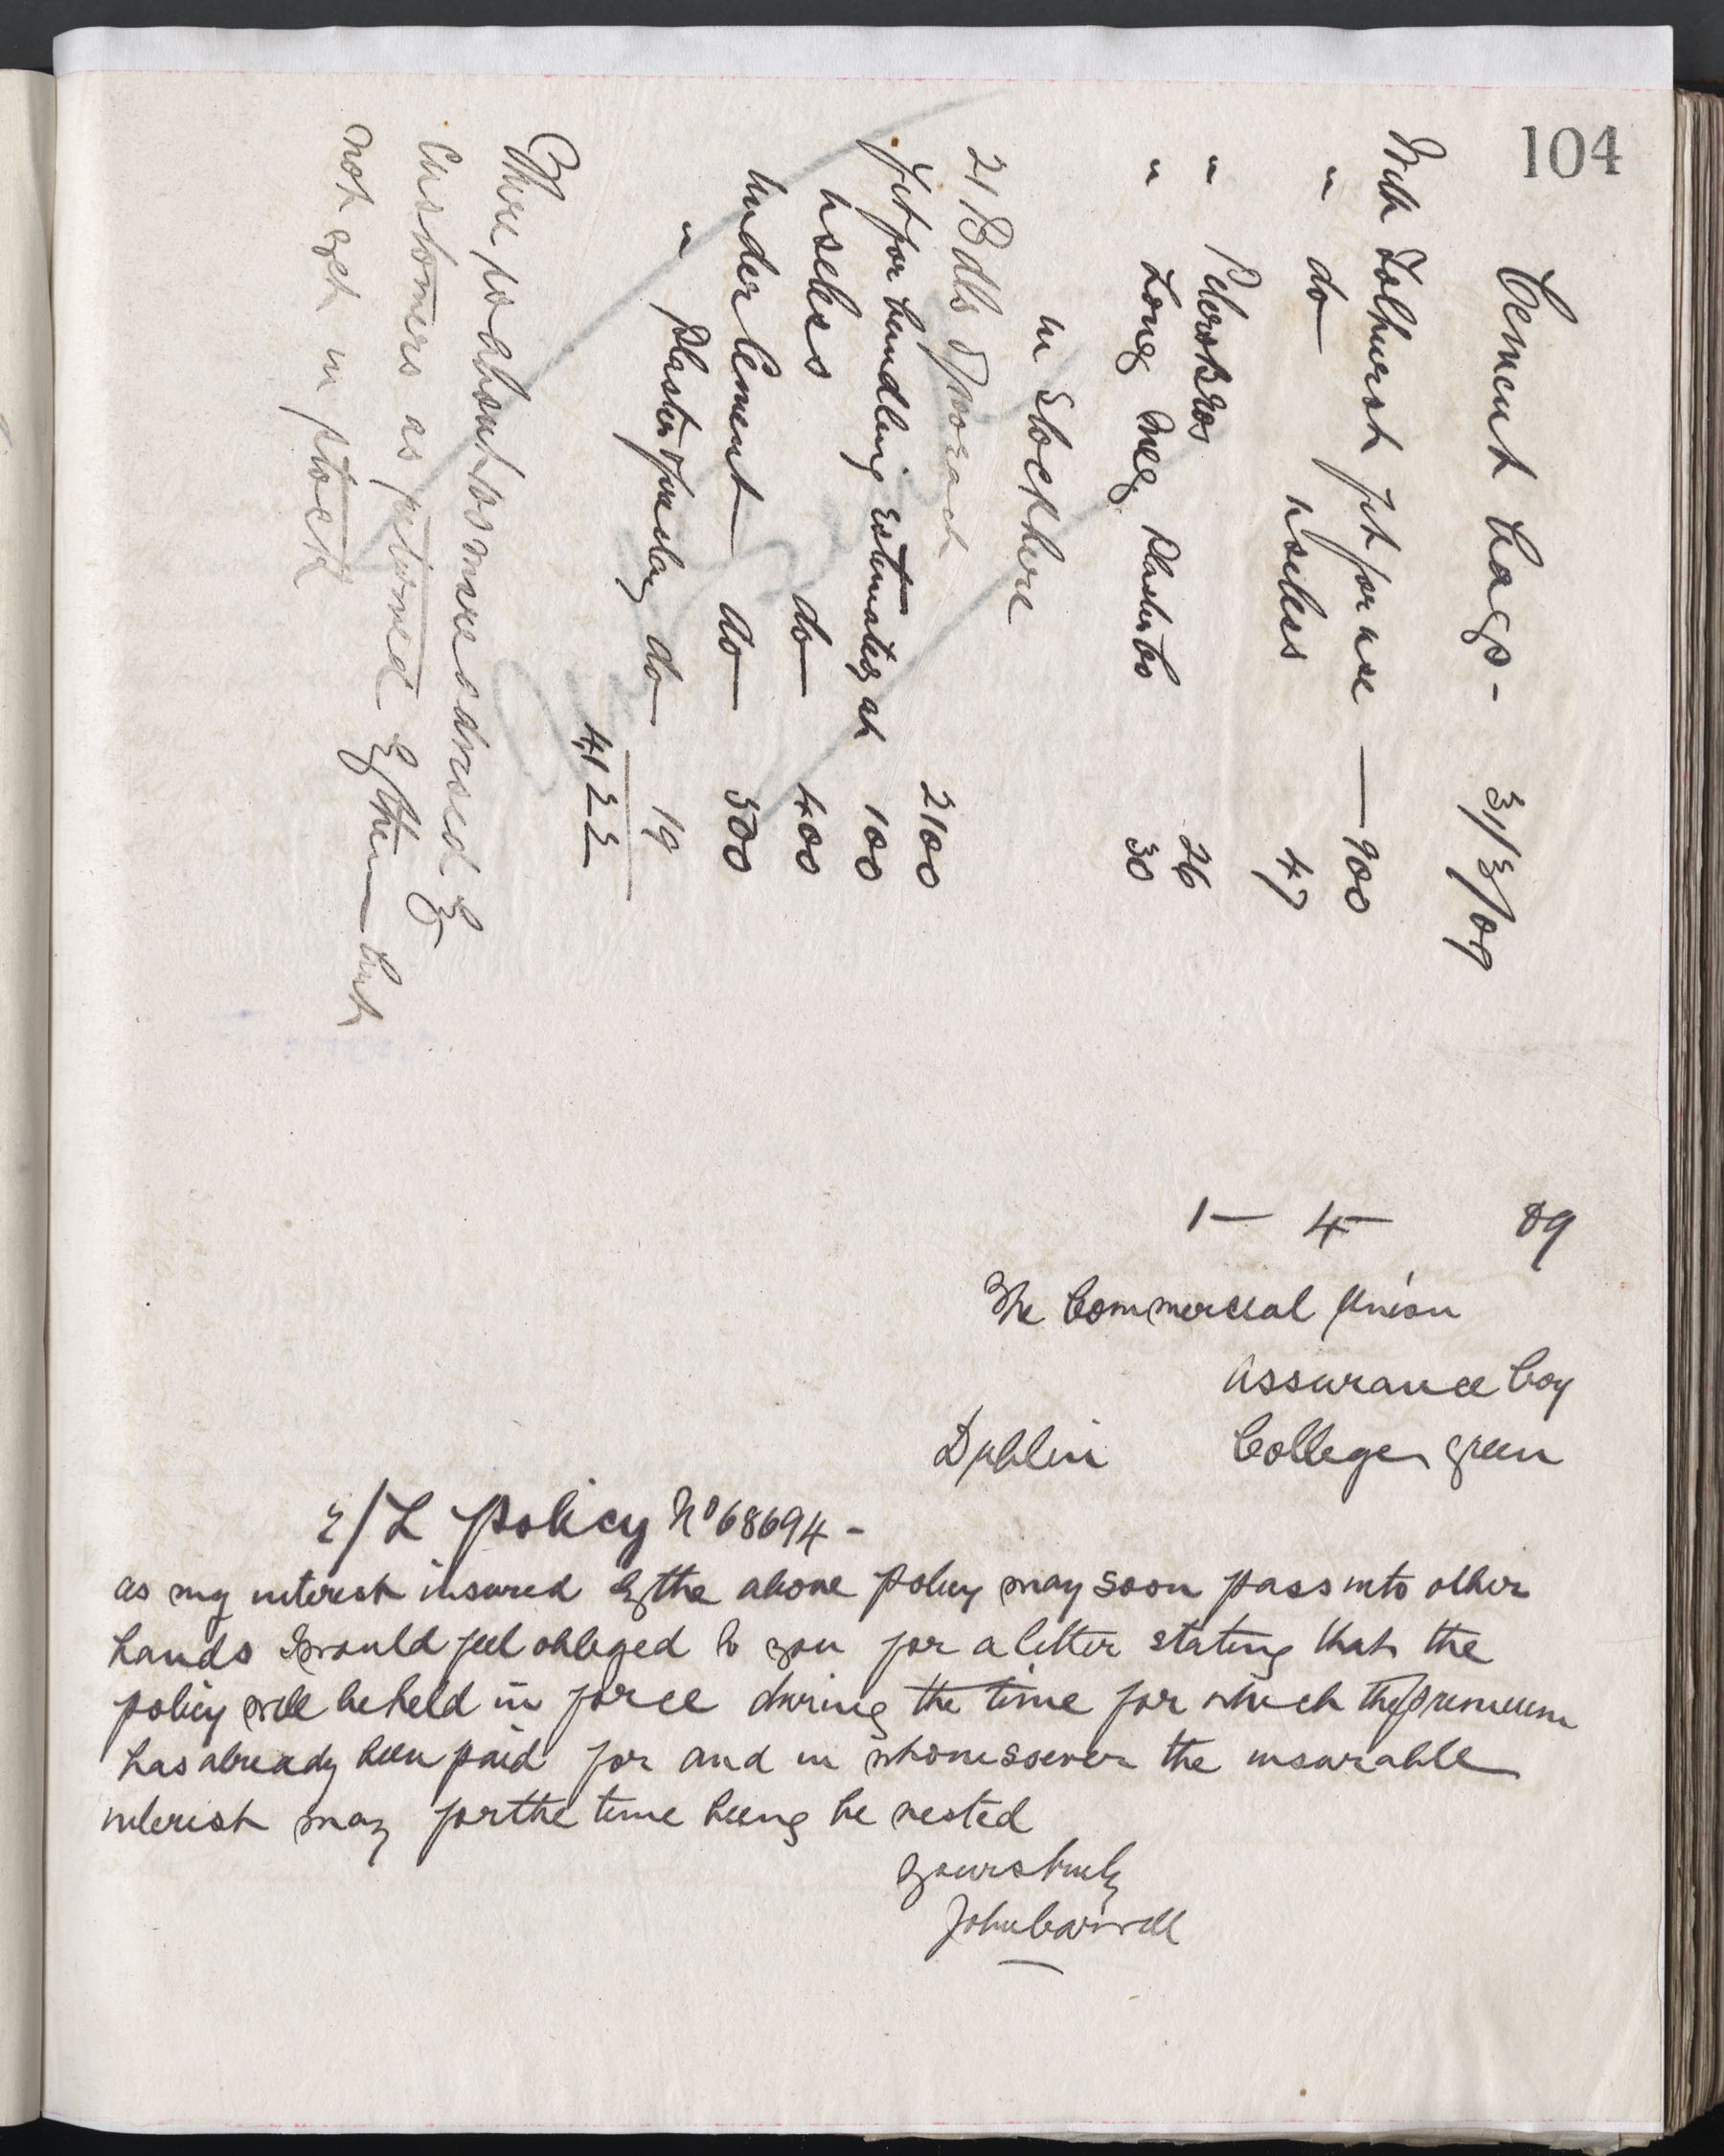 104
Cement bags - 31/3/09
With Tolhurst fit for use — 900
" do useless 47
" Peters Bros 26
" Long Meg Plaster Co 30
in Stock here
21 Bdls of
fit for bundling estimated at 2100
100
useless do 400
under Cement do 500
" Plaster & do 19
4122
There is about 60 more advised by
Customers as returned by them but
not yet in stock
1 — 4 — 09
The Commercial Union
Assurance Coy
Dublin College green
r/L policy No 68694 -
as my interest insured by the above policy may soon pass into other
hands I would feel obliged to you for a letter stating that the
policy will be held in force during the time for which the premium
has already been paid for and in whomsoever the insurable
interest may for the time being be vested
yours truly
John